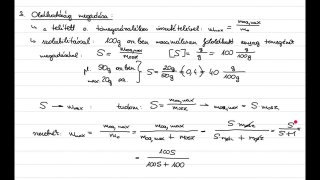 3. Oldhatóság megadása:
↳ a telített o. tömegszázalékos összetételével: w_max = m_oa,max / m_o
↳ szolubilitásával: 100g o.szer-ben maximálisan feloldható anyag tömegének
megadásával: S = m_oa,max / m_osz [S] = g/g = 100 g/100g
pl. 50g osz-ben max 20g oa } S = 20g/50g (0,4) 40 g/100g
S → w_max: tudom: S = m_oa,max / m_osz → m_oa,max = S·m_osz
w_max = m_oa,max / m_o = m_oa,max / (m_oa,max + m_osz) = S·m_osz / (S·m_osz + m_osz) = S / (S+1)
= 100S / (100S + 100)